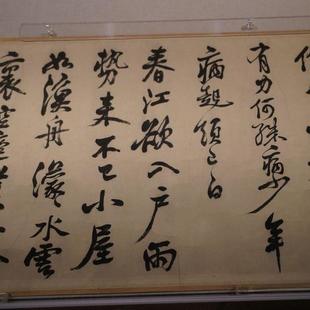 有力何殊病少年
病起頭已白
春江欲入戶雨
勢來不已小屋
如漁舟濛水雲
裏空庖煮